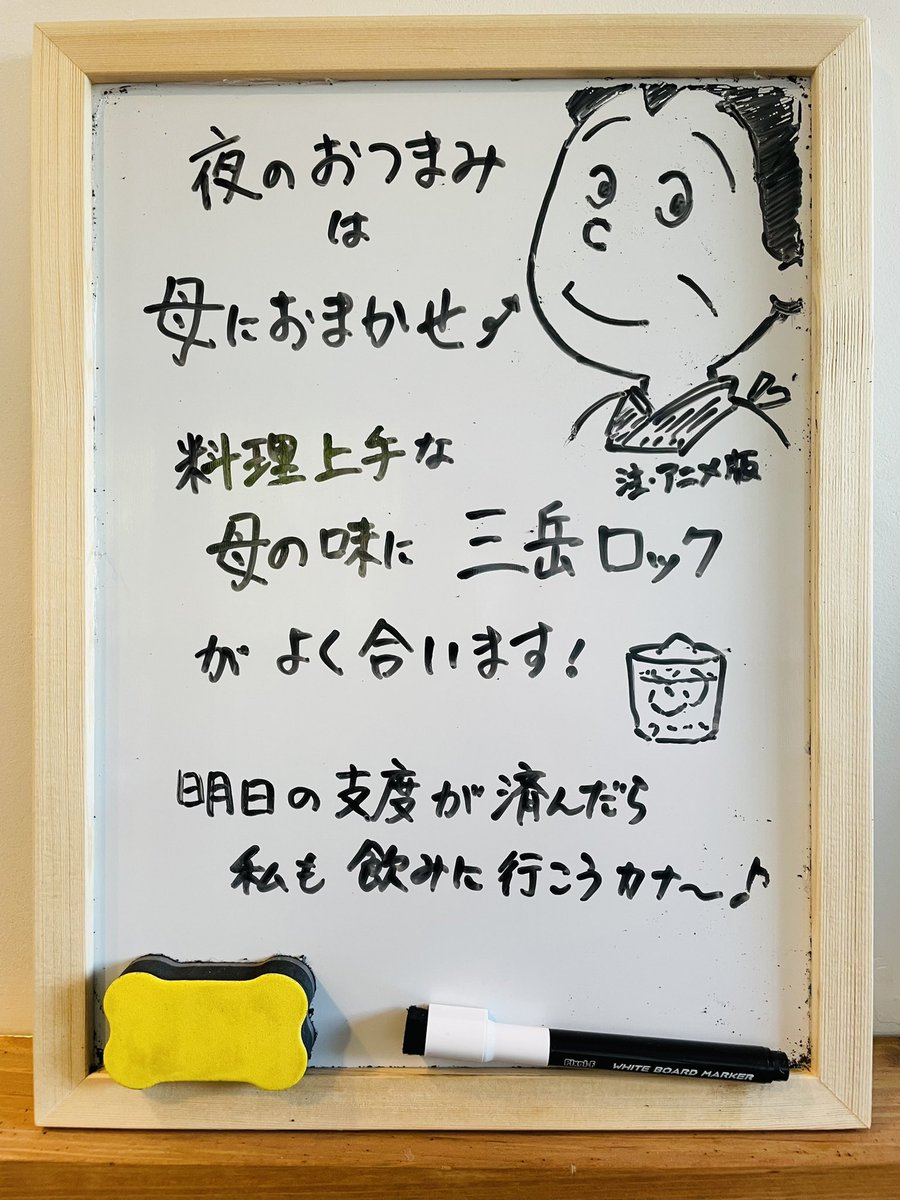 夜のおつまみ
は
母におまかせ♪
注・アニメ版
料理上手な
母の味に 三岳ロック
がよく合います!
明日の支度が済んだら
私も飲みに行こうカナ〜♪
Pixel-F WHITE BOARD MARKER